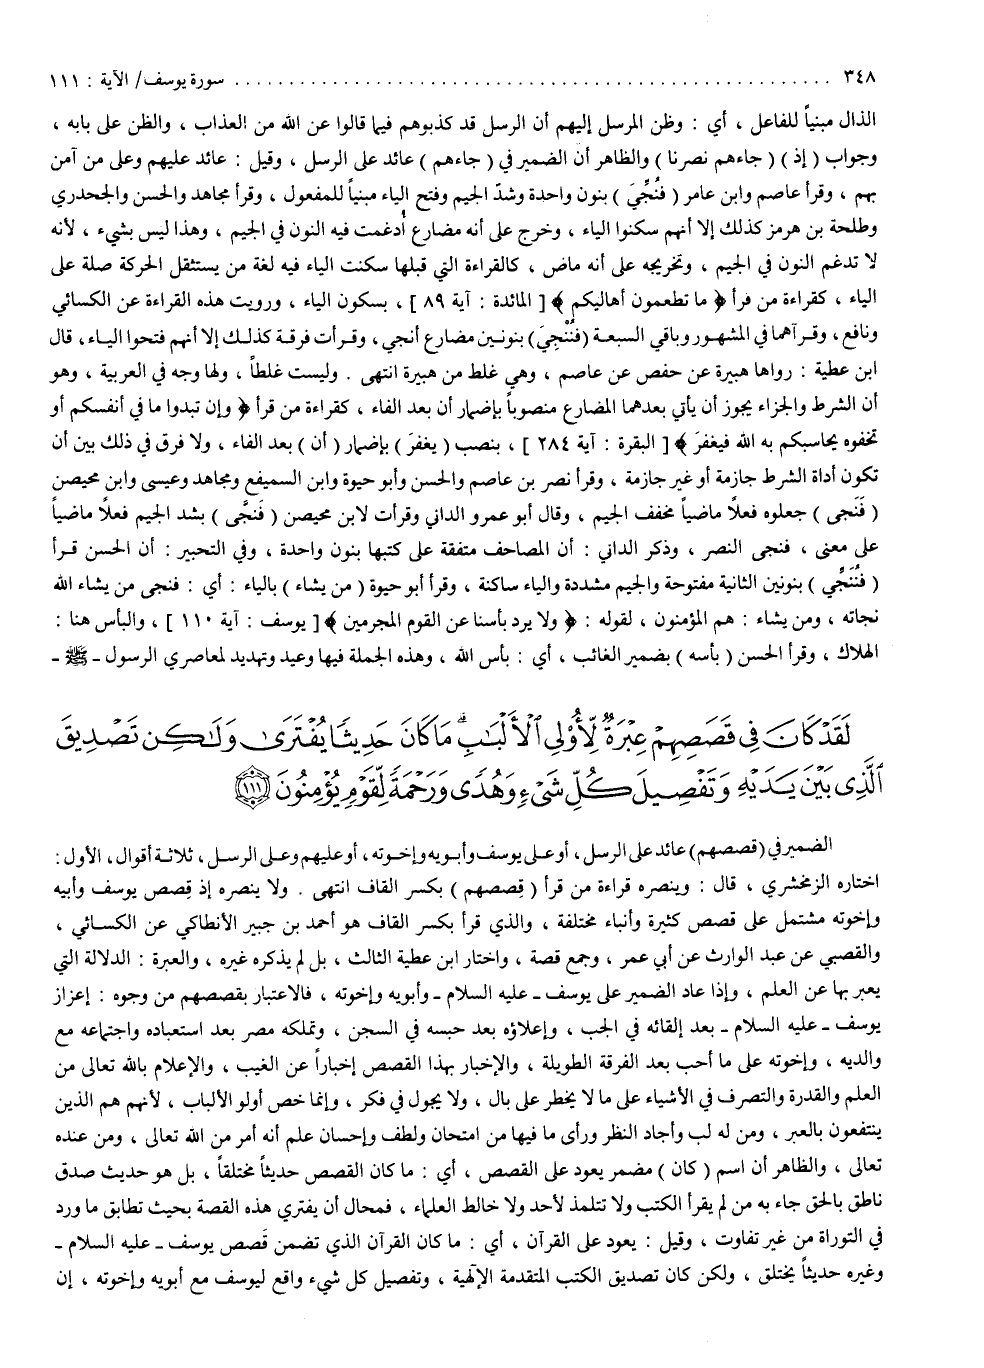 ٣٤٨ ........................................................ سورة يوسف/ الآية : ١١١
الذال مبنياً للفاعل ، أي : وظن المرسل إليهم أن الرسل قد كذبوهم فيما قالوا عن الله من العذاب ، والظن على بابه ،
وجواب ( إذ ) ( جاءهم نصرنا ) والظاهر أن الضمير في ( جاءهم ) عائد على الرسل ، وقيل : عائد عليهم وعلى من آمن
بهم ، وقرأ عاصم وابن عامر ( فَنُجِّيَ ) بنون واحدة وشدّ الجيم وفتح الياء مبنياً للمفعول ، وقرأ مجاهد والحسن والجحدري
وطلحة بن هرمز كذلك إلا أنهم سكنوا الياء ، وخرج على أنه مضارع أُدغمت فيه النون في الجيم ، وهذا ليس بشيء ، لأنه
لا تدغم النون في الجيم ، وتخريجه على أنه ماض ، كالقراءة التي قبلها سكنت الياء فيه لغة من يستثقل الحركة صلة على
الياء ، كقراءة من قرأ ﴿ ما تطعمون أهاليكم ﴾ [ المائدة : آية ٨٩ ] ، بسكون الياء ، ورويت هذه القراءة عن الكسائي
ونافع ، وقرآهما في المشهور وباقي السبعة (فَنُنْجِيَ) بنونين مضارع أنجى ، وقرأت فرقة كذلك إلا أنهم فتحوا الياء ، قال
ابن عطية : رواها هبيرة عن حفص عن عاصم ، وهي غلط من هبيرة انتهى . وليست غلطاً ، ولها وجه في العربية ، وهو
أن الشرط والجزاء يجوز أن يأتي بعدهما المضارع منصوباً بإضمار أن بعد الفاء ، كقراءة من قرأ ﴿ وإن تبدوا ما في أنفسكم أو
تخفوه يحاسبكم به الله فيغفرَ ﴾ [ البقرة : آية ٢٨٤ ] ، بنصب ( يغفرَ ) بإضمار ( أن ) بعد الفاء ، ولا فرق في ذلك بين أن
تكون أداة الشرط جازمة أو غير جازمة ، وقرأ نصر بن عاصم والحسن وأبو حيوة وابن السميفع ومجاهد وعيسى وابن محيصن
( فَنَجى ) جعلوه فعلًا ماضياً مخفف الجيم ، وقال أبو عمرو الداني وقرأت لابن محيصن ( فَنجَّى ) بشد الجيم فعلًا ماضياً
على معنى ، فنجى النصر ، وذكر الداني : أن المصاحف متفقة على كتبها بنون واحدة ، وفي التحبير : أن الحسن قرأ
( فنُنَجِّي ) بنونين الثانية مفتوحة والجيم مشددة والياء ساكنة ، وقرأ أبو حيوة ( من يشاء ) بالياء : أي : فنجى من يشاء الله
نجاته ، ومن يشاء : هم المؤمنون ، لقوله : ﴿ ولا يرد بأسنا عن القوم المجرمين ﴾ [ يوسف : آية ١١٠ ] ، والبأس هنا :
الهلاك ، وقرأ الحسن ( بأسه ) بضمير الغائب ، أي : بأس الله ، وهذه الجملة فيها وعيد وتهديد لمعاصري الرسول ـ ﷺ ـ
لَقَدْ كَانَ فِي قَصَصِهِمْ عِبْرَةٌ لِّأُوْلِي ٱلْأَلْبَٰبِ ۗ مَا كَانَ حَدِيثًا يُفْتَرَىٰ وَلَٰكِن تَصْدِيقَ
ٱلَّذِي بَيْنَ يَدَيْهِ وَتَفْصِيلَ كُلِّ شَيْءٍ وَهُدًى وَرَحْمَةً لِّقَوْمٍ يُؤْمِنُونَ ﴿١١١﴾
الضمير في (قصصهم) عائد على الرسل ، أو على يوسف وأبويه وإخوته ، أو عليهم وعلى الرسل ، ثلاثة أقوال ، الأول :
اختاره الزمخشري ، قال : وينصره قراءة من قرأ ( قِصصهم ) بكسر القاف انتهى . ولا ينصره إذ قِصص يوسف وأبيه
وإخوته مشتمل على قصص كثيرة وأنباء مختلفة ، والذي قرأ بكسر القاف هو أحمد بن جبير الأنطاكي عن الكسائي ،
والقصبي عن عبد الوارث عن أبي عمر ، وجمع قصة ، واختار ابن عطية الثالث ، بل لم يذكره غيره ، والعبرة : الدلالة التي
يعبر بها عن العلم ، وإذا عاد الضمير على يوسف ـ عليه السلام ـ وأبويه وإخوته ، فالاعتبار بقصصهم من وجوه : إعزاز
يوسف ـ عليه السلام ـ بعد إلقائه في الجب ، وإعلاؤه بعد حبسه في السجن ، وتملكه مصر بعد استعباده واجتماعه مع
والديه ، وإخوته على ما أحب بعد الفرقة الطويلة ، والإخبار بهذا القصص إخباراً عن الغيب ، والإعلام بالله تعالى من
العلم والقدرة والتصرف في الأشياء على ما لا يخطر على بال ، ولا يجول في فكر ، وإنما خص أولو الألباب ، لأنهم هم الذين
ينتفعون بالعبر ، ومن له لب وأجاد النظر ورأى ما فيها من امتحان ولطف وإحسان علم أنه أمر من الله تعالى ، ومن عنده
تعالى ، والظاهر أن اسم ( كان ) مضمر يعود على القصص ، أي : ما كان القصص حديثاً مختلقاً ، بل هو حديث صدق
ناطق بالحق جاء به من لم يقرأ الكتب ولا تتلمذ لأحد ولا خالط العلماء ، فمحال أن يفتري هذه القصة بحيث تطابق ما ورد
في التوراة من غير تفاوت ، وقيل : يعود على القرآن ، أي : ما كان القرآن الذي تضمن قَصص يوسف ـ عليه السلام ـ
وغيره حديثاً يختلق ، ولكن كان تصديق الكتب المتقدمة الإلٰهية ، وتفصيل كل شيء واقع ليوسف مع أبويه وإخوته ، إن